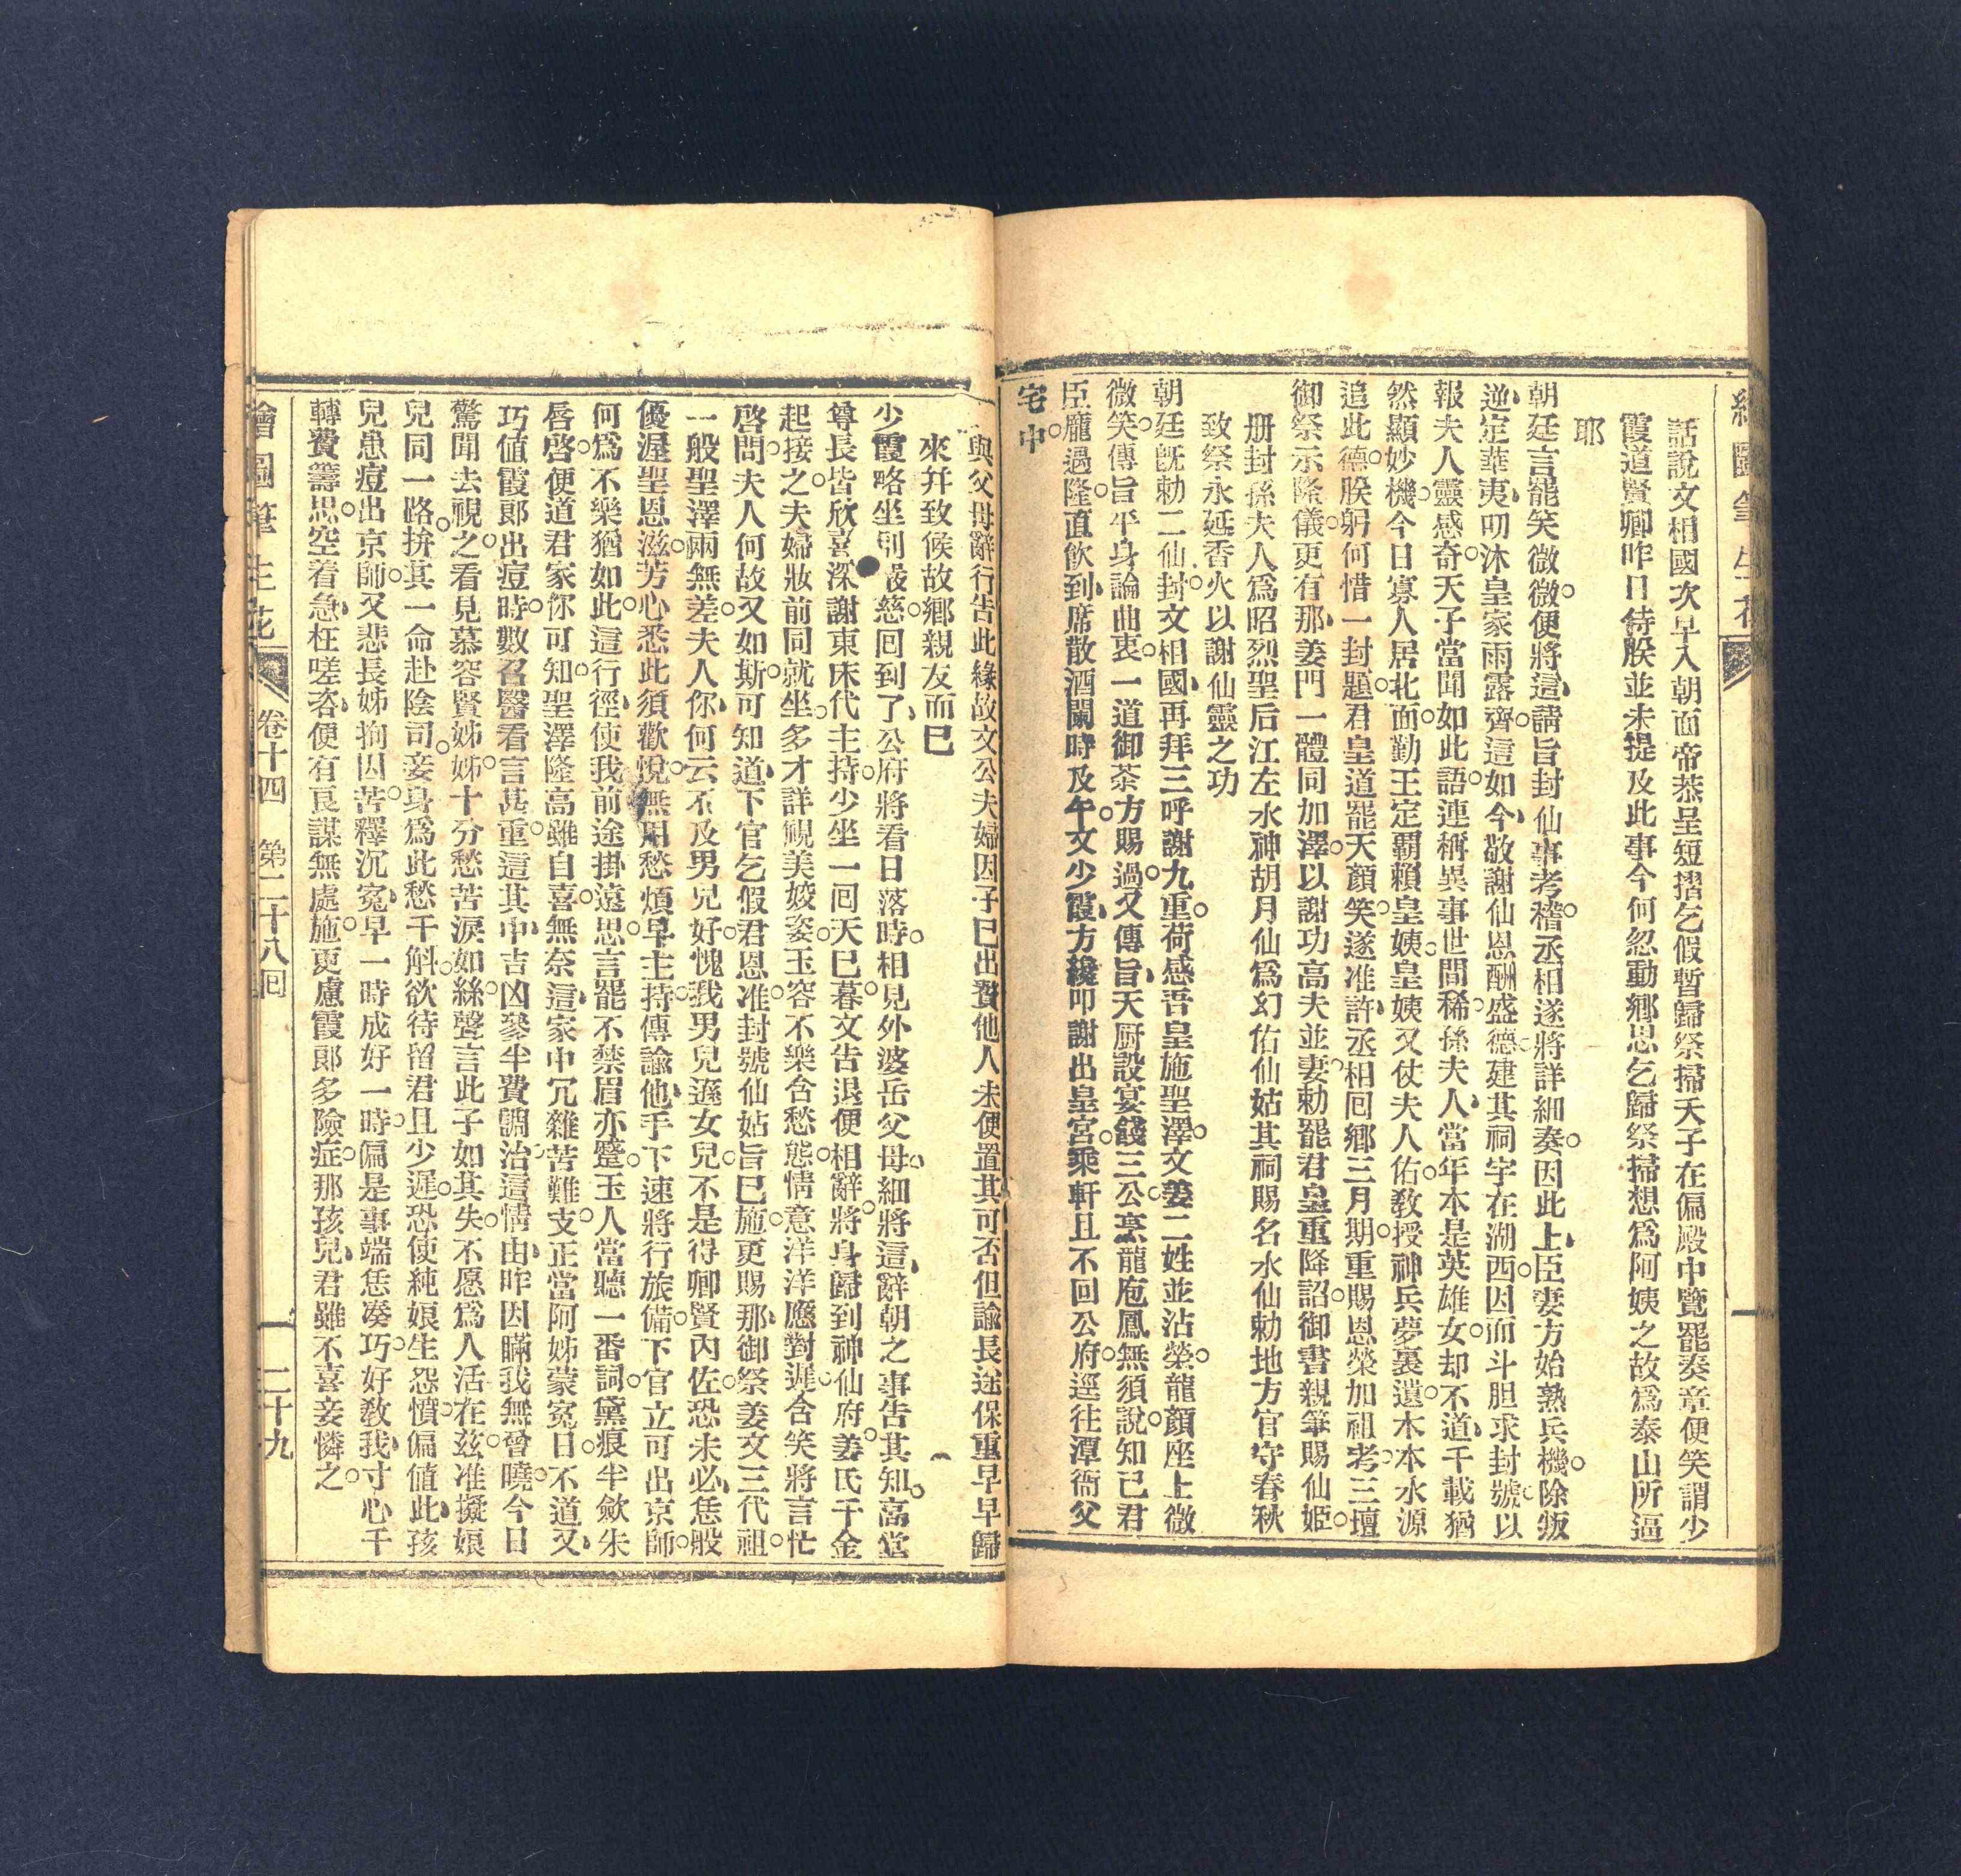 繪圖筆生花
話說文相國次早入朝面帝恭呈短摺乞假暫歸祭掃天子在偏殿中覽罷奏章便笑謂少
霞道賢卿昨日侍朕並未提及此事今何忽動鄉思乞歸祭掃想爲阿姨之故爲泰山所逼
耶
朝廷言罷笑微微。便將這、請旨封仙事考稽。丞相遂將詳細奏。因此上、臣妻方始熟兵機。除叛
逆、定華夷、叨沐皇家雨露齊。這如今、敬謝仙恩酬盛德。建其祠宇在湖西。因而斗胆求封號。以
報夫人靈感奇。天子當聞如此語。連稱異事世間稀。孫夫人、當年本是英雄女。却不道、千載猶
然顯妙機。今日寡人居北面。勤王定霸賴皇姨。皇姨又仗夫人佑。教授神兵夢裏遺。木本水源
追此德。朕躬何惜一封題。君皇道罷天顏笑。遂准許、丞相回鄉三月期。重賜恩榮加祖考。三壇
御祭示隆儀。更有那、姜門一體同加澤。以謝功高夫並妻。勅罷君皇重降詔。御書親筆賜仙姬。
册封孫夫人爲昭烈聖后江左水神胡月仙爲幻佑仙姑其祠賜名水仙勅地方官守春秋
致祭永延香火以謝仙靈之功
朝廷旣勅二仙封。文相國、再拜三呼謝九重。荷感吾皇施聖澤。文姜二姓並沾榮。龍顏座上微
微笑。傳旨平身論曲衷。一道御茶方賜過。又傳旨、天厨設宴餞三公。烹龍庖鳳無須說。知己君
臣寵遇隆。直飲到、席散酒闌時及午。文少霞、方纔叩謝出皇宮。乘軒且不回公府。逕往潭衙父
宅中。
與父母辭行告此緣故文公夫婦因子已出贅他人未便置其可否但諭長途保重早早歸
來幷致候故鄉親友而已
少霞略坐別 慈。回到了、公府將看日落時。相見外婆岳父母。細將這、辭朝之事告其知。高堂
尊長皆欣喜。深謝東床代主持。少坐一回天已暮。文告退、便相辭。將身歸到神仙府。姜氏千金
起接之。夫婦妝前同就坐。多才詳覷美姣姿。玉容不樂含愁態。情意洋洋應對遲。含笑將言忙
啓問。夫人何故又如斯。可知道、下官乞假君恩准。封號仙姑旨已施。更賜那、御祭姜文三代祖。
一般聖澤兩無差。夫人你、何云不及男兒好。愧我男兒遜女兒。不是得卿賢內佐。恐未必、恁般
優渥聖恩滋。芳心悉此須歡悅。無用愁煩早主持。傳諭他、手下速將行旅備。下官立可出京師。
何爲不樂猶如此。這行徑、使我前途掛遠思。言罷不禁眉亦蹙。玉人當聽一番詞。黛痕半歛朱
唇啓。便道君家你可知。聖澤隆高雖自喜。無奈這、家中冗雜苦難支。正當阿姊蒙冤日。不道又、
巧値霞郎出痘時。數召醫看言甚重。這其中、吉凶參半費調治。這情由、昨因瞞我無曾曉。今日
驚聞去視之。看見慕容賢姊姊。十分愁苦淚如絲。聲言此子如其失。不愿爲人活在茲。准擬娘
兒同一路。拚其一命赴陰司。妾身爲此愁千斛。欲待留君且少遲。恐使純娘生怨憤。偏值此、孩
兒患痘出京師。又悲長姊拘囚苦。釋沉冤、早一時成好一時。偏是事端恁湊巧。好教我、寸心千
轉費籌思。空着急、枉嗟咨。便有良謀無處施。更慮霞郎多險症。那孩兒、君雖不喜妾憐之。
繪圖筆生花 卷十四 第二十八回 二十九